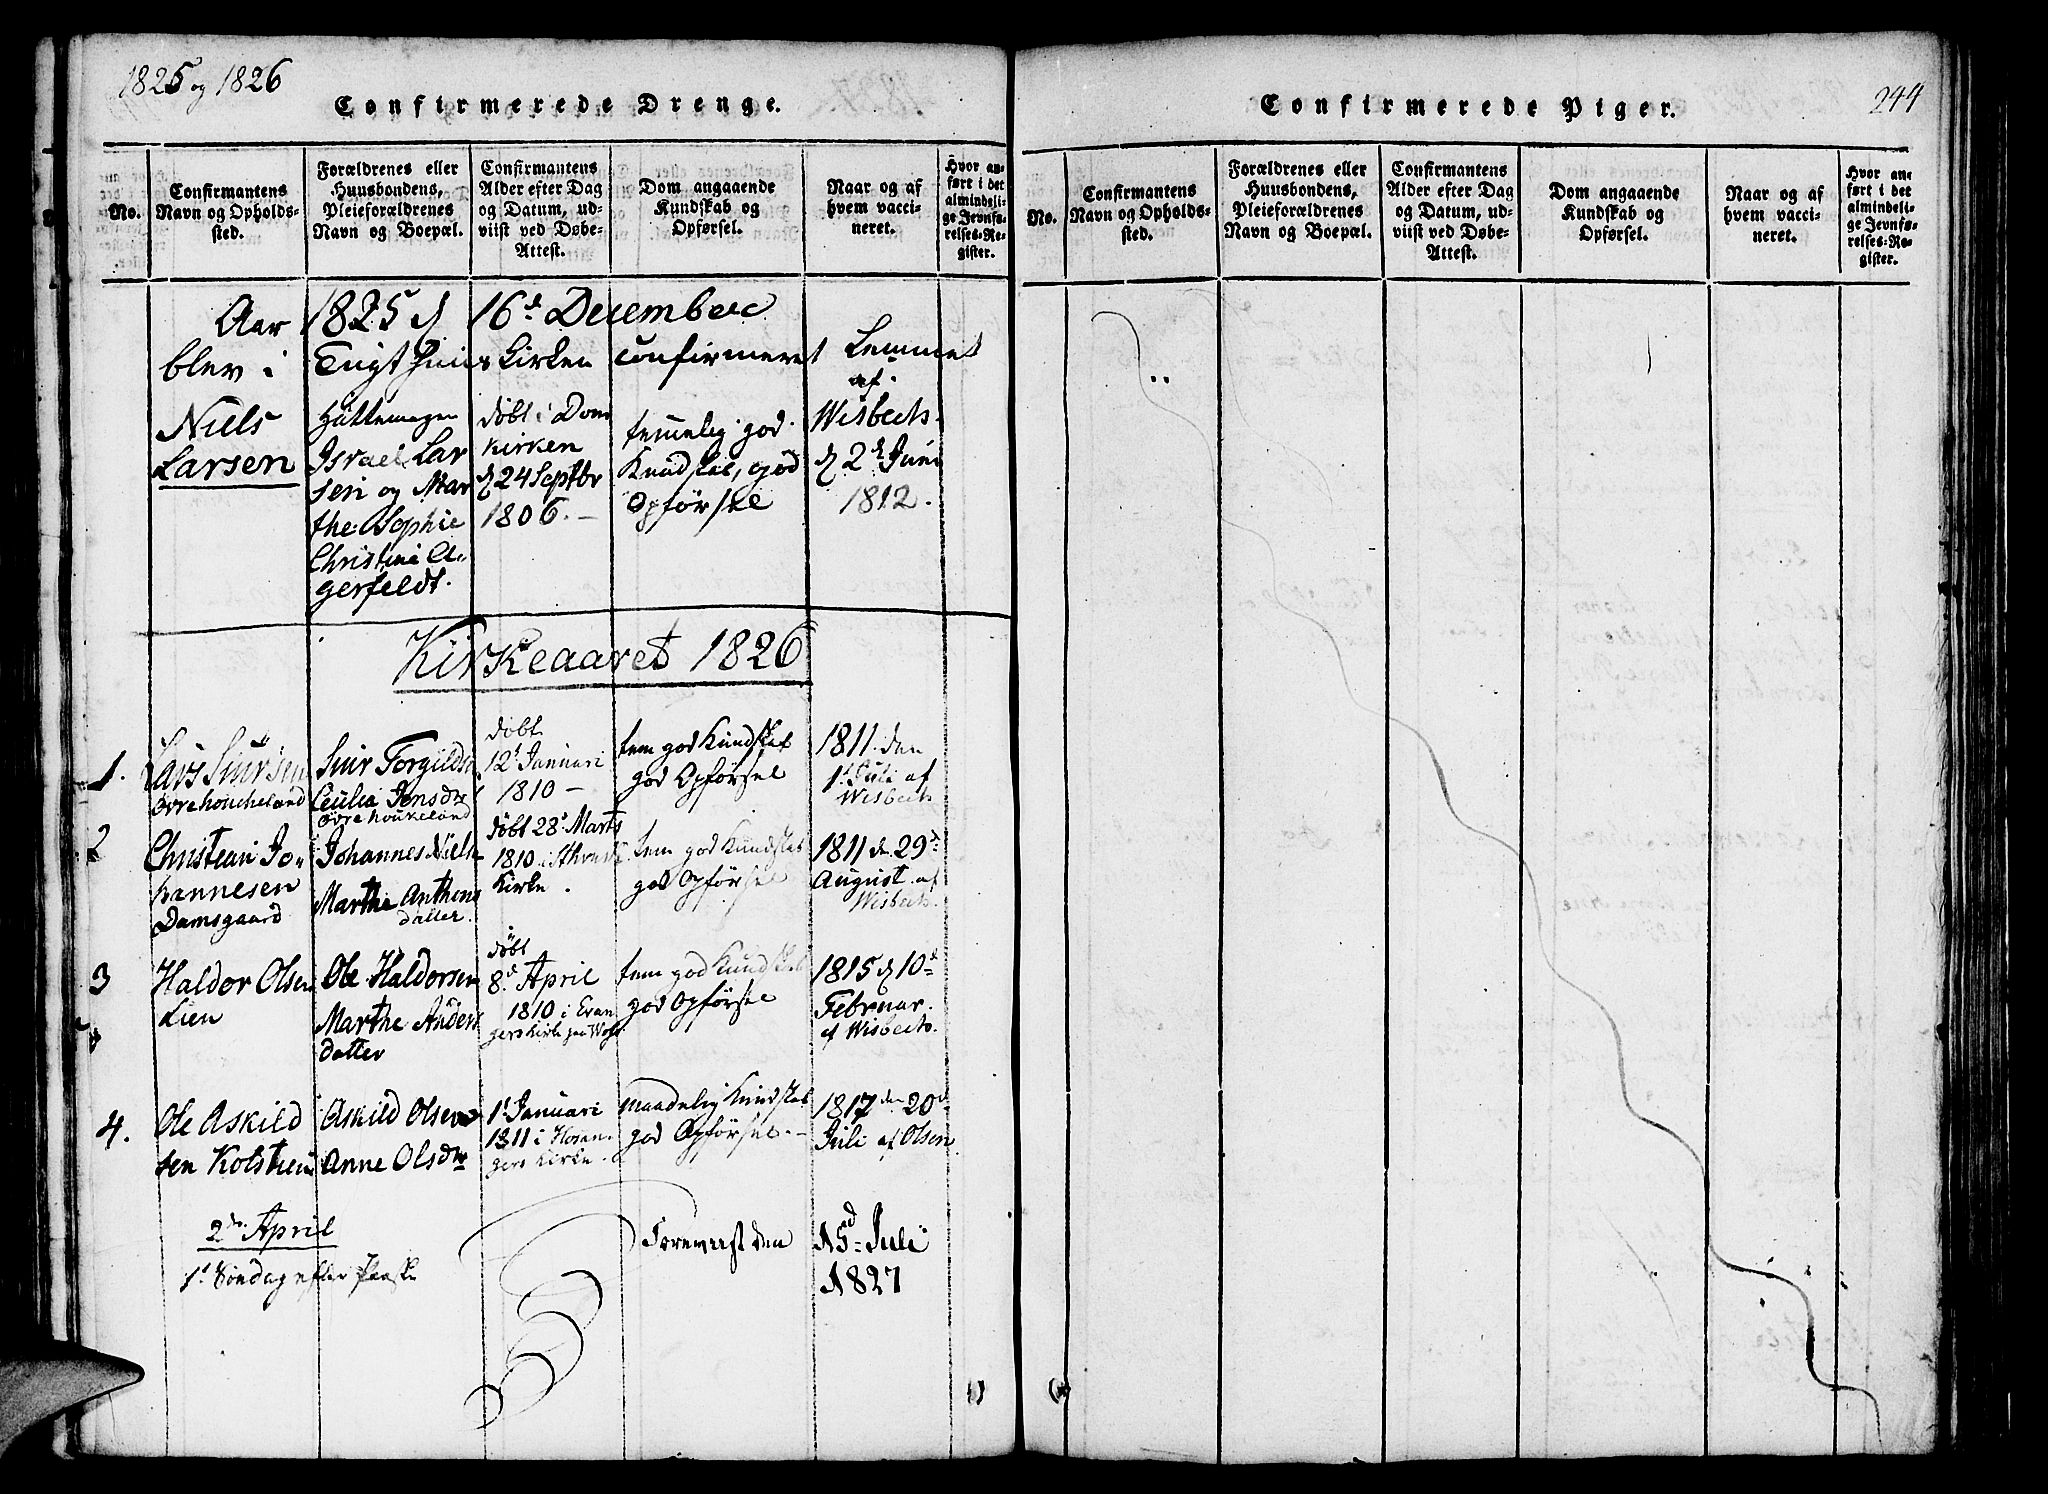 1825 og 1826
Confirmerede Drenge.
No.
Confirmantens
Navn og Opholds-
sted.
Forældrenes eller
Huusbondens,
Pleieforældrenes
Navn og Boepæl.
Confirmantens
Alder efter Dag
og Datum, ud-
viist ved Døbe-
Attest.
Dom angaaende
Kundskab og
Opførsel.
Naar og af
hvem vacci-
neret.
Hvor an-
ført i det
almindeli-
ge Jevnfø-
relses-Re-
gister.
Aar 1825 d 16d December
blev i Tugthuus Kirken confirmeret
Niels
Larsen
Israel Lar
sen og Mar
the Sophie
Christine A-
gerfeldt.
døbt i Dom
kirken
d 24 Septbr
1806. –
temmelig god
Kundskab, god
Opførsel
af
Wisbech
d 2d Juni
1812.
Kirkeaaret 1826
1.
Lars Siursen
Siur Torgildsen
Cecilia Jonsdr
døbt
12t Januari
1810 –
tem god Kundskab
god Opførsel
1811 den
1t Juli af
Wisbech
2
Christian Jo-
hannesen
Damsgaard
Johannes Niels
Marthe Anthons
datter.
døbt 28d Marts
1810 i
Kirke.
tem god Kundskab
god Opførsel
1811 den 29d
August af
Wisbech.
3
Haldor Olsen
Lien
Ole Haldorsen
Marthe Anders
datter
døbt
8d April
1810 i Evan
gers Kirke paa Woss
tem god Kundskab
god Opførsel
1815 d 10d
Februar.
af Wisbech.
4.
Ole Askild
sen Kolstein
Askild Olsen
Anne Olsdr
1t Januari
1811 i Hosan-
gers Kirke.
maadelig Kundskab
god Opførsel. –
1817 den 20d
Juli af Olsen
2den April
1t Søndag efter Paaske
Foreviist den 15d Juli
1827
Confirmerede Piger.
244
No.
Confirmantens
Navn og Opholds-
sted.
Forældrenes eller
Huusbondens,
Pleieforældrenes
Navn og Boepæl.
Confirmantens
Alder efter Dag
og Datum, ud-
viist ved Døbe-
Attest.
Dom angaaende
Kundskab og
Opførsel.
Naar og af
hvem vacci-
neret.
Hvor an-
ført i det
almindeli-
ge Jevnfø-
relses-Re-
gister.